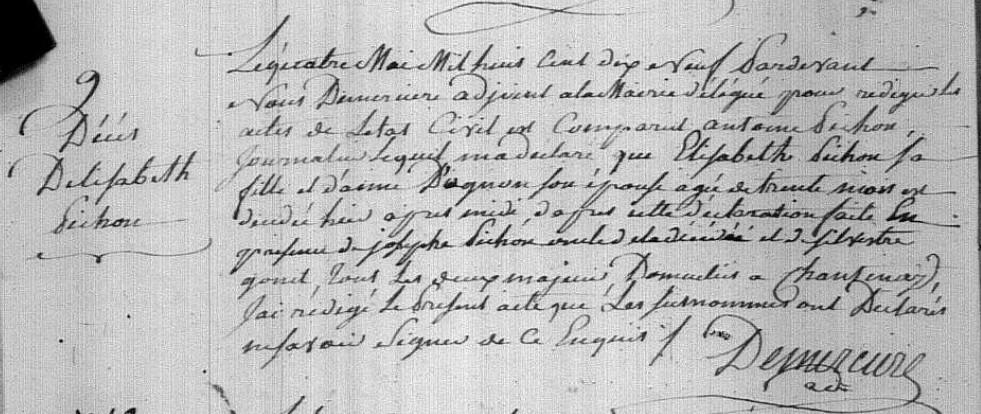 9
Décés
Delisabeth
Pichon
Lequatre Mai Mil huis Cent dix Neuf Pardevant
Nous Demerciere adjoint alaMairie délégué pour rediger les
actes de Letat Civil est Comparut antoine Pichon,
Journalier Lequel madeclaré que Elisabeth Pichon sa
fille et d'anne son épouse agée detrente mois est
decedée hier apres midi, d'apres cette declaration faite En
presence de josephe Pichon oncle deladécédée et de silvestre
gonet, tous les deux majeur Domiciliés a Chantenay,
J'ai rédigé Le present acte que Les susnommes ont Declarés
nesavoir Signer de Ce Enquis
Demerciere
adt